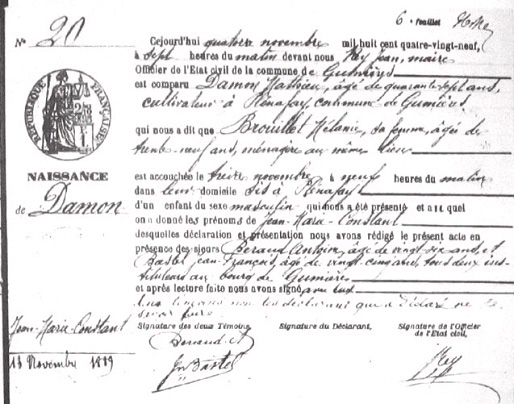 6e feuillet
N° 20
Cejourd'hui quatorze novembre mil huit cent quatre-vingt-neuf,
à sept heures du matin devant nous Rey Jean, maire
Officier de l'Etat civil de la commune de Gumières
est comparu Damon Mathieu, âgé de quarante sept ans,
cultivateur à Prénafay, commune de Gumières,
qui nous a dit que Brouillet Mélanie, sa femme, âgée de
trente-neuf ans, ménagère au même lieu
est accouchée le treize novembre à neuf heures du matin
dans leur domicile sis à Prénafay
d'un enfant du sexe masculin qui nous a été présenté et auquel
on a donné les prénoms de Jean-Marie-Constant
desquelles déclaration et présentation nous avons rédigé le présent acte en
présence des sieurs Béraud Antoine, âgé de vingt-six ans et
Bastel Jean-François, âgé de vingt-cinq ans, tous deux ins-
tituteurs au bourg de Gumières
et après lecture faite nous avons signé avec eux
les témoins non le déclarant qui a déclaré ne le
savoir faire
RÉPUBLIQUE FRANÇAISE
NAISSANCE
de Damon
Jean-Marie-Constant
13 Novembre 1889
Signature des deux Témoins, Signature du Déclarant, Signature de l'Officier
de l'Etat civil,
Beraud A
Jn Bastel
Rey